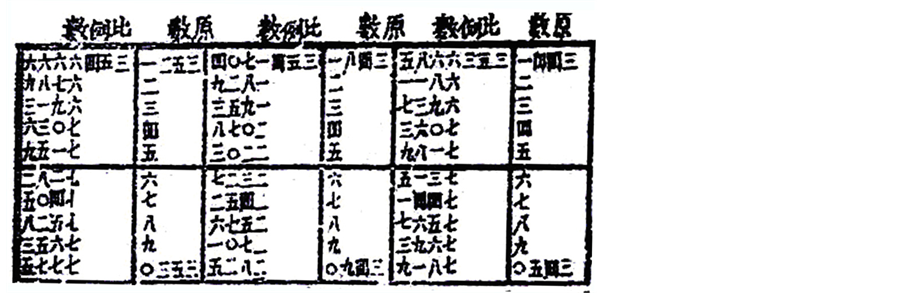 原數 比例數 原數 比例數 原數 比例數
三四四一 三五三六六八五 三四八一 三五四一七〇四 三五二一 三五四六六六六
二 六八一一 二 一八二九 二 六七八九
三 六九三七 三 一九五三 三 六九一三
四 七〇六三 四 二〇七八 四 七〇三六
五 七一八九 五 二二〇三 五 七一五九
六 七三一五 六 二三二七 六 七二八二
七 七四四一 七 二四五二 七 七四〇五
八 七五六七 八 二五七六 八 七五二八
九 七六九三 九 二七〇一 九 七六五三
三四五〇 七八一九 三四九〇 二八二五 三五三〇 七七七五